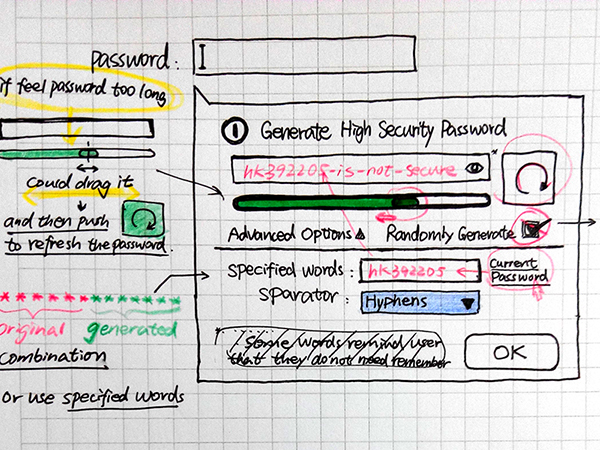 password:
if feel password too long
could drag it
and then push
to refresh the password.
****************
original generated
combination
Or use specified words
① Generate High Security Password
hk392205-is-not-secure
*
Advanced Options Randomly Generate
specified words: hk392205
Current
Password
sparator: Hyphens
* Some words remind user
that they do not need remember
OK